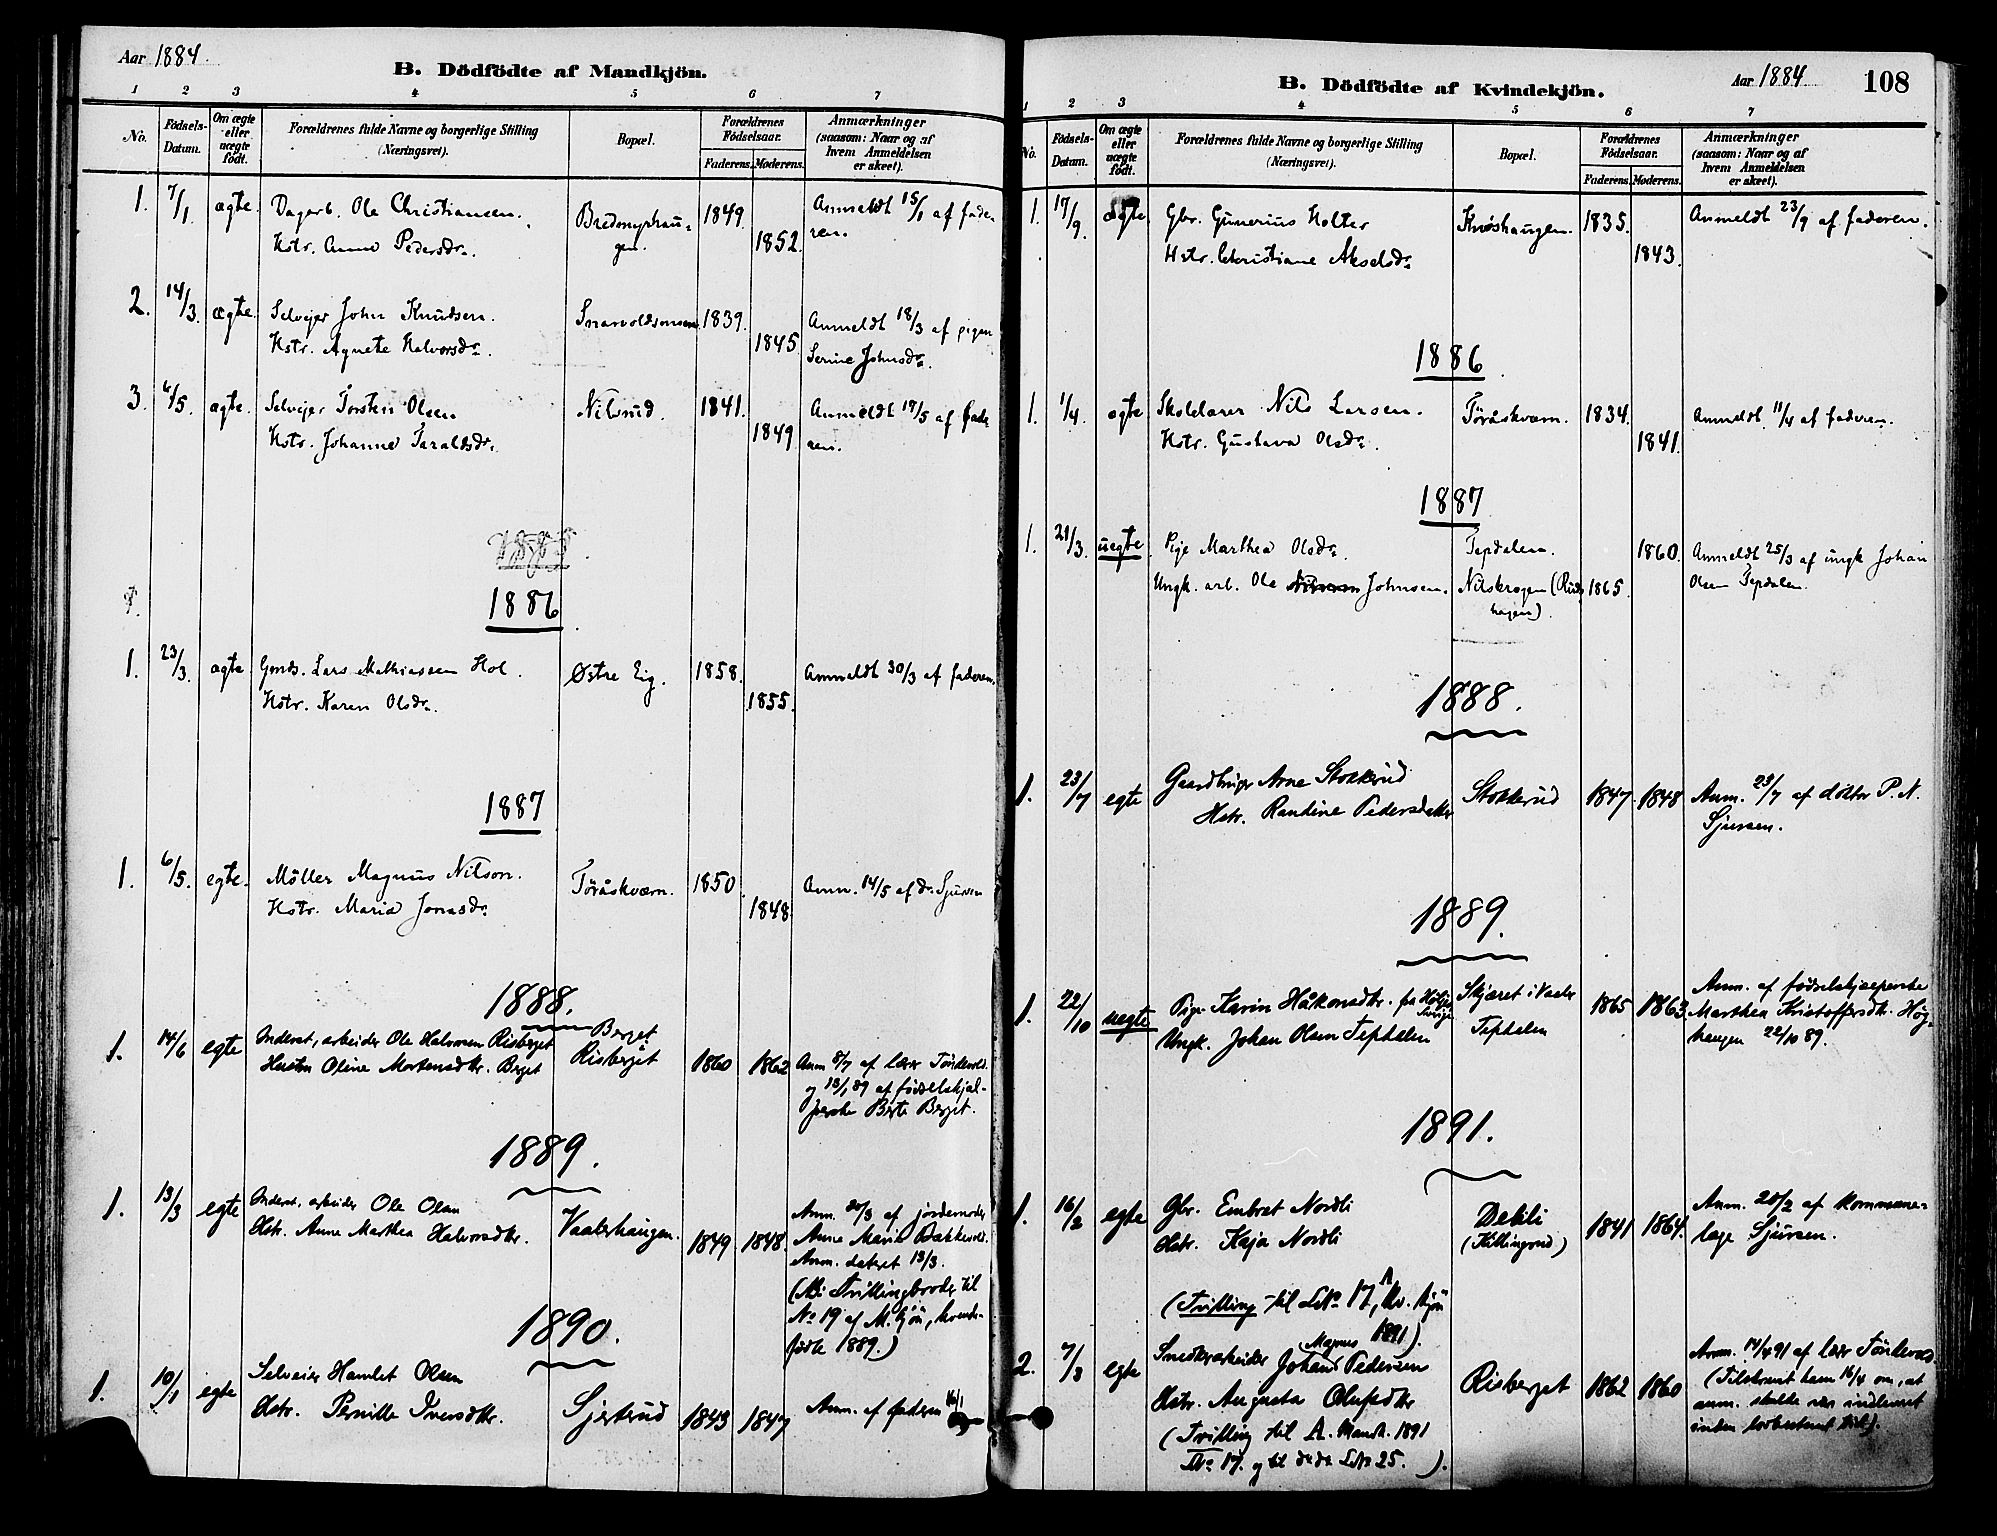 Aar 1884.
B. Dödfödte af Mandkjön.
1 2 3 4 5 6 7
No.
Födsels-
Datum.
Om ægte
eller
uægte
födt.
Forældrenes fulde Navne og borgerlige Stilling
(Næringsvei).
Bopæl.
Forældrenes
Födselsaar.
Faderens. Moderens.
Anmærkninger
(saasom: Naar og af
hvem Anmeldelsen
er skeet).
1. 7/1 ægte. Dagarb. Ole Christiansen. 1849. Anmeldt 15/1 af fade
Hstr. Anne Pedersdr. 1852. ren.
2. 14/3. ægte. Selvejer John Knudsen. 1839. Anmeldt 18/3 af pigen
Hstr. Agnete Halvorsdr. 1845 Serine Johnsdr.
3. 6/5. ægte. Selvejer Torsten Olsen Nilsrud. 1841. Anmeldt 17/5 af fade
Hstr. Johanne Taraldsdr. 1849 ren.
1885
1886
1. 23/3. ægte Gmds. Lars Mathiassen Hol. Østre Eig. 1858. Anmeldt 30/3 af faderen.
Hstr. Karen Olsdr. 1855.
1887
1. 6/5. egte. Möller Magnus Nilson. Töråskværn. 1850. Anm. 14/5 af dr. Sjursen
Hstr. Maria Jonasdr. 1848.
1888.
1. 14/6 egte Inderst, arbeider Ole Halvorsen Risberget Berget
Hustru Oline Mortensdtr. Berget Risberget 1860 1862 Anm 8/7 af lærer Tördevold.
og 13/1 89 af födselshjæl-
perske Berte Berget.
1889.
1. 13/3 egte Inderst, arbeider Ole Olsen
Hstr. Anne Marthea Halvorsdtr. Vaalerhaugen. 1849 1848.
Anm. 20/3 af jordemoder
Anne Marie Bakkevold.
Anm. dateret 13/3.
Tvillingbroder til
No 19 af M.kjön, levende-
födte 1889.)
1890.
1. 10/1 egte Selveier Hamlet Olsen
Hstr. Pernille Iversdtr. Sjerterud 1843 1847 Anm. af faderen 16/1
B. Dödfödte af Kvindekjön.
Aar 1884 108
1 2 3 4 5 6 7
No.
Födsels-
Datum.
Om ægte
eller
uægte
födt.
Forældrenes fulde Navne og borgerlige Stilling
(Næringsvei).
Bopæl.
Forældrenes
Födselsaar.
Faderens. Moderens.
Anmærkninger
(saasom: Naar og af
hvem Anmeldelsen
er skeet).
1. 17/9. ægte. Gbr. Gunerius Holter Knöshaugen. 1835. Anmeldt 23/9 af faderen.
Hstr. Christiane Akselsdr. 1843.
1886
1. 1/4. ægte Skolelærer Nils Larsen. Töråskværn. 1834. Anmeldt 11/4 af faderen.
Hstr. Gustava Olsdr. 1841.
1887
1. 21/3. uegte Pige Marthea Olsdr. Tepdalen. 1860. Anmeldt 25/3 af ungk Johan
Ungk. arb. Ole Johnsen. Nilskrogen (Ruds 1865. Olsen Tepdalen.
hagen).
1888.
1. 23/7 egte Gaardbruger Arne Stokkerud Stokkerud 1847 1848 Anm. 29/7 af doktor P. N.
Hstr. Randine Pedersdatter Sjursen.
1889.
1. 22/10 uegte Pige Karin Håkonsdtr. fra Höljes Sverige Skjæret i Vaaler 1865 1863.
Ungk. Johan Olsen Tepdalen Tepdalen
Anm. af födselshjælperske
Marthea Kristoffersdtr. Hög-
haugen 22/10 89.
1891.
1. 16/2 egte Gbr. Embret Nordli Dekili 1841 1864. Anm. 20/2 af kommune-
Hstr. Kaja Nordli (Killingrud) læge Sjursen.
(Tvilling til LNo 17, A Kv. kjön
1891).
2. 7/3 egte Snedkerarbeider Johan Magnus Pedersen
Hstr. Augusta Olufsdtr Risberget 1862 1860
(Tvilling til A. Mandk. 1891
No 17. og til do do LNo 25.).
Anm. 14/4 91 af lærer Tördevold.
(Tilskrevet ham 16/4 om, at
anm. skulde være indleveret
inden lovbestemt tid).